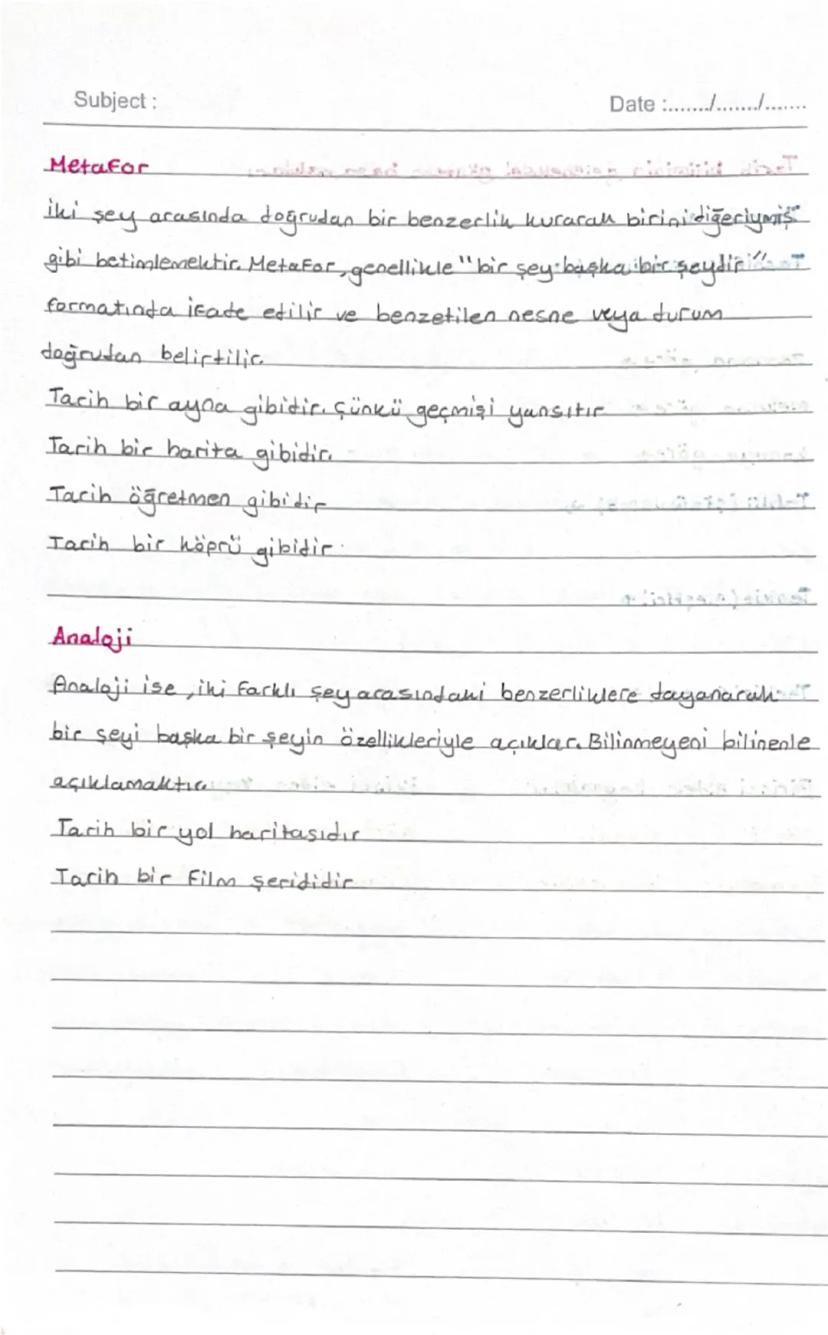 Subject :
Date :......./......./.......
Metafor
iki şey arasında doğrudan bir benzerlik kurarak birini diğeriymiş
gibi betimlemektir. Metafor, genellikle "bir şey başka bir şeydir"
formatında ifade edilir ve benzetilen nesne veya durum
doğrudan belirtilir.
Tarih bir ayna gibidir. Çünkü geçmişi yansıtır
Tarih bir harita gibidir.
Tarih öğretmen gibidir
Tarih bir köprü gibidir.
Analoji
Analoji ise, iki farklı şey arasındaki benzerliklere dayanarak
bir şeyi başka bir şeyin özellikleriyle açıklar. Bilinmeyeni bilinenle
açıklamaktır.
Tarih bir yol haritasıdır
Tarih bir film şerididir